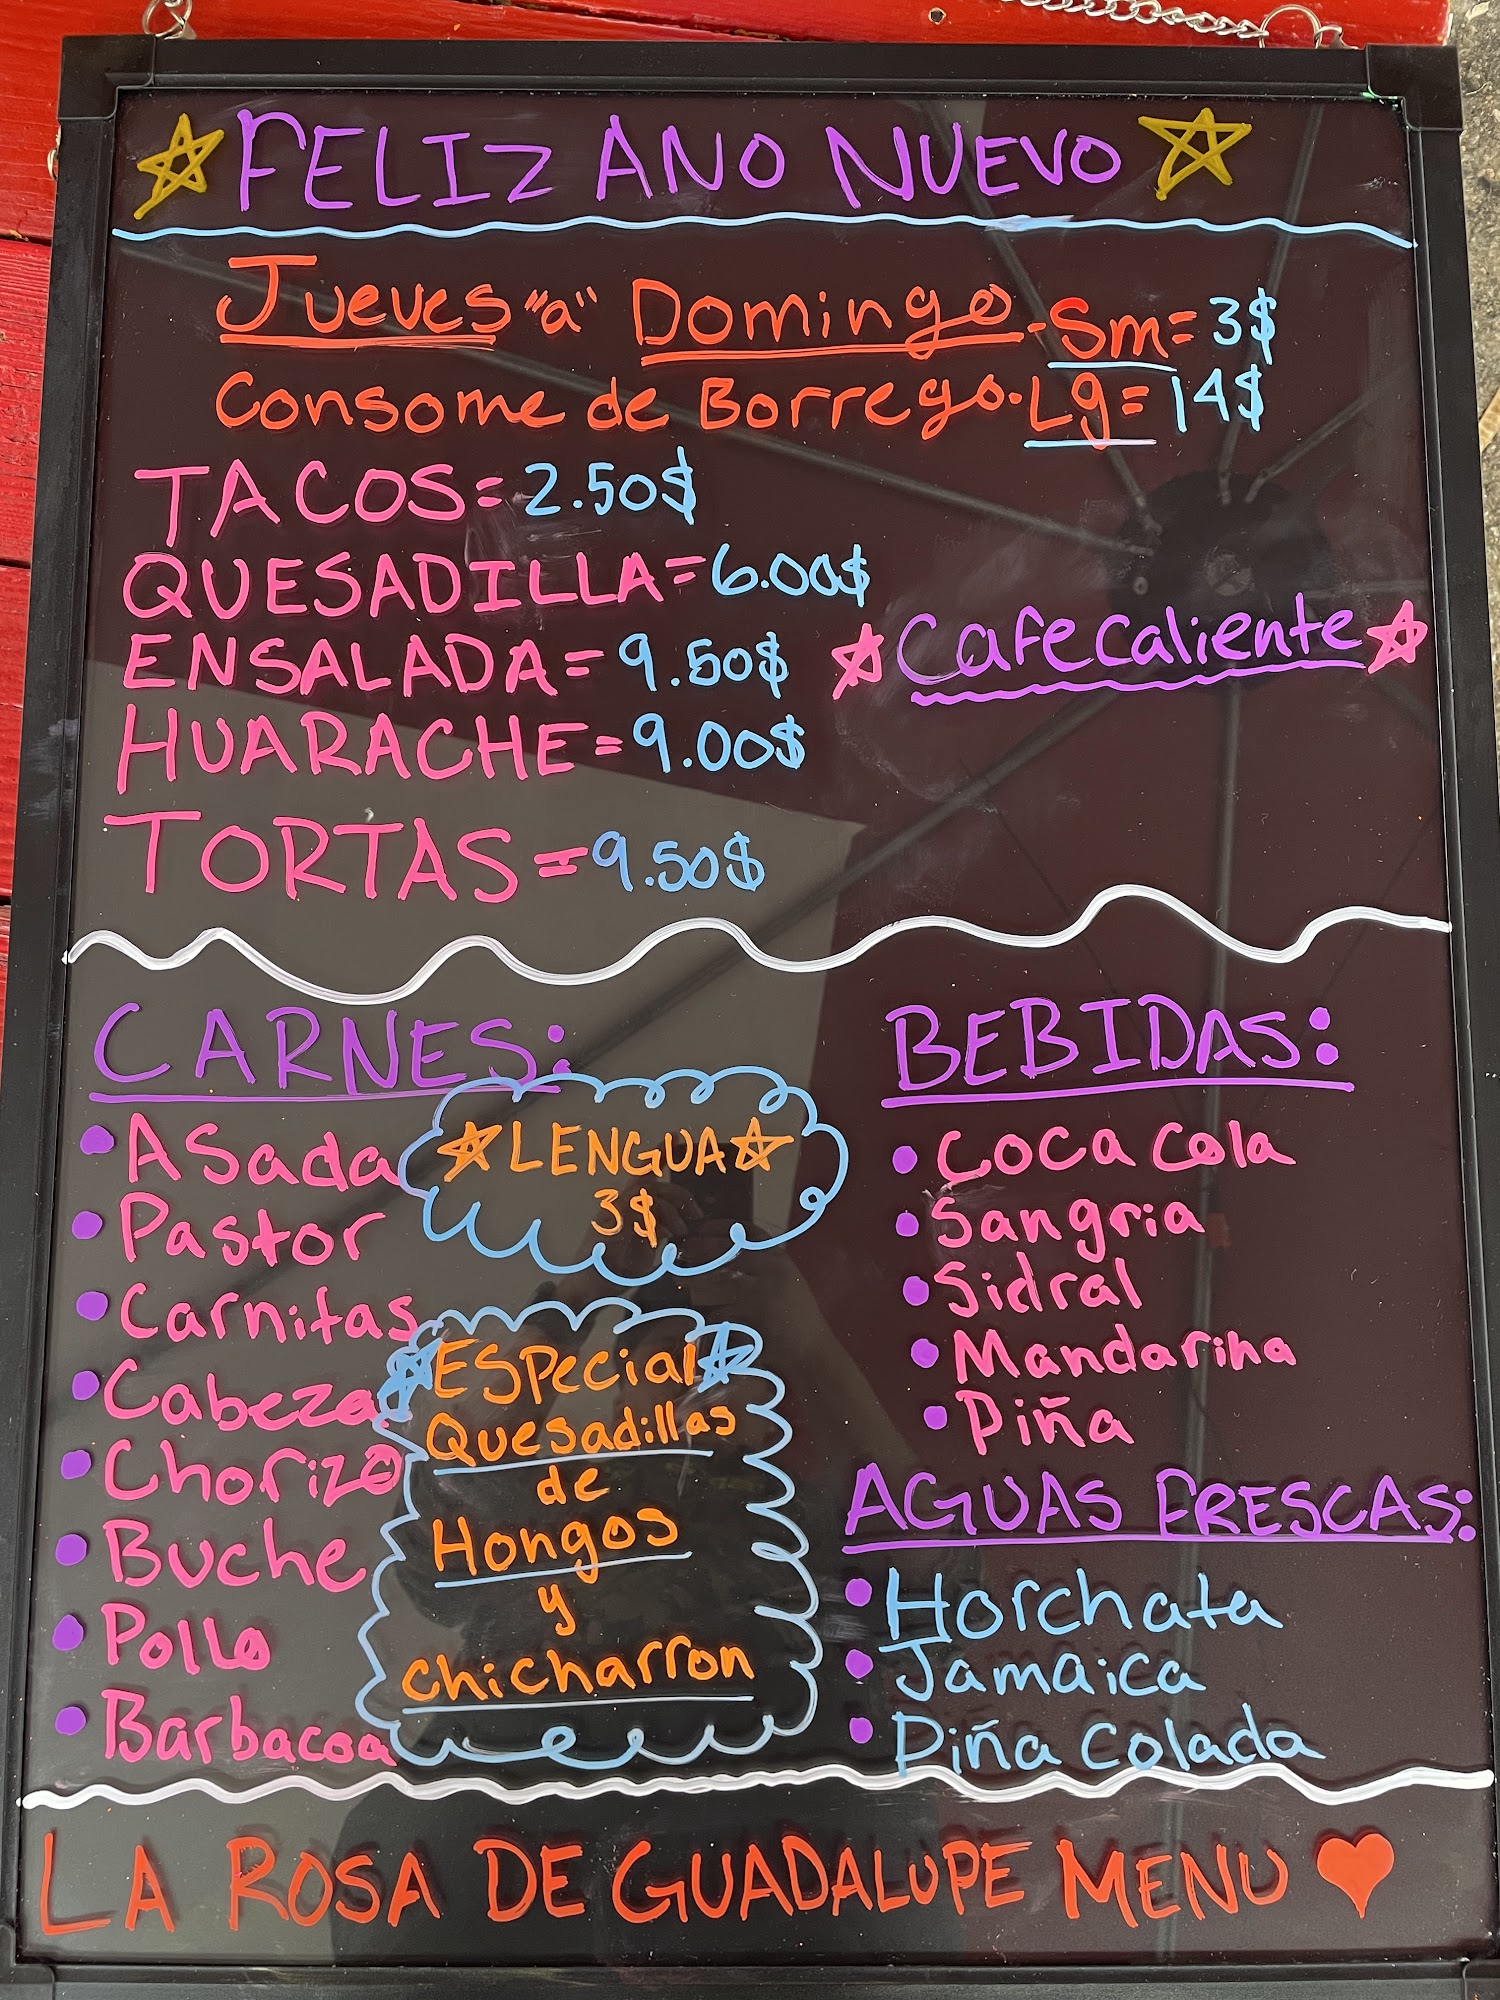 FELIZ ANO NUEVO
Jueves "a" Domingo - Sm = 3$
Consome de Borrego. Lg = 14$
TACOS = 2.50$
QUESADILLA = 6.00$
ENSALADA = 9.50$
Cafe Caliente
HUARACHE = 9.00$
TORTAS = 9.50$
CARNES:
• Asada
• Pastor
• Carnitas
• Cabeza
• Chorizo
• Buche
• Pollo
• Barbacoa
LENGUA
3$
Especial
Quesadillas
de
Hongos
y
chicharron
BEBIDAS:
• Coca Cola
• Sangria
• Sidral
• Mandarina
• Piña
AGUAS FRESCAS:
• Horchata
• Jamaica
• Piña Colada
LA ROSA DE GUADALUPE MENU